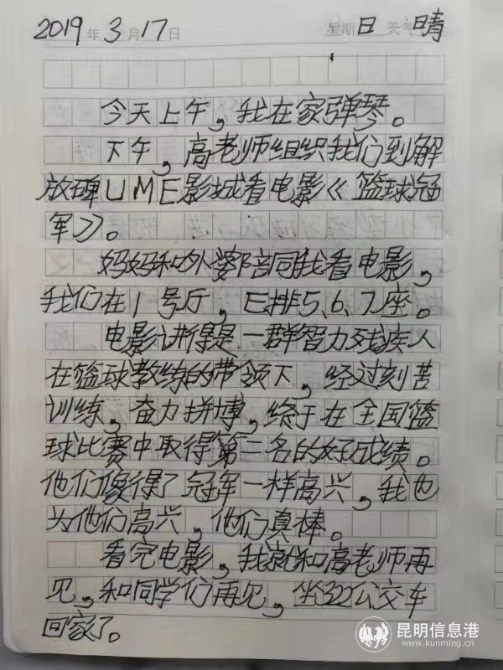 2019年3月17日 星期日 天气 晴
今天上午，我在家弹琴。
下午，高老师组织我们到解
放碑UME影城看电影《篮球冠
军》。
妈妈和外婆陪同我看电影，
我们在1号厅，E排5、6、7座。
电影讲得是一群智力残疾人
在篮球教练的带领下，经过刻苦
训练，奋力拼搏，终于在全国篮
球比赛中取得第二名的好成绩。
他们像得了冠军一样高兴，我也
为他们高兴，他们真棒。
看完电影，我就和高老师再
见，和同学们再见，坐322公交车
回家了。
昆明信息港
www.kunming.cn